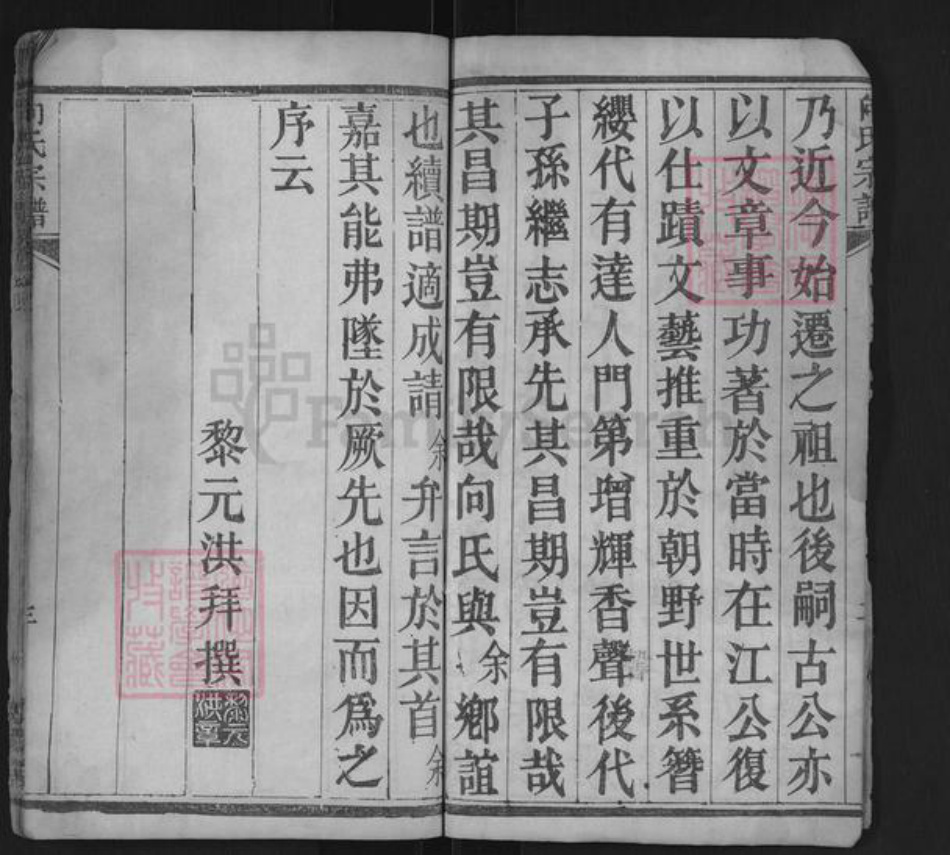 向氏宗譜
乃近今始遷之祖也後嗣古公亦
以文章事功著於當時在江公復
以仕蹟文藝推重於朝野世系簪
纓代有達人門第增輝香聲後代
子孫繼志承先其昌期豈有限哉
其昌期豈有限哉向氏與余鄉誼
也續譜適成請余弁言於其首余
嘉其能弗墜於厥先也因而為之
序云
黎元洪拜撰
黎元洪章
向氏宗譜
三
FamilySearch